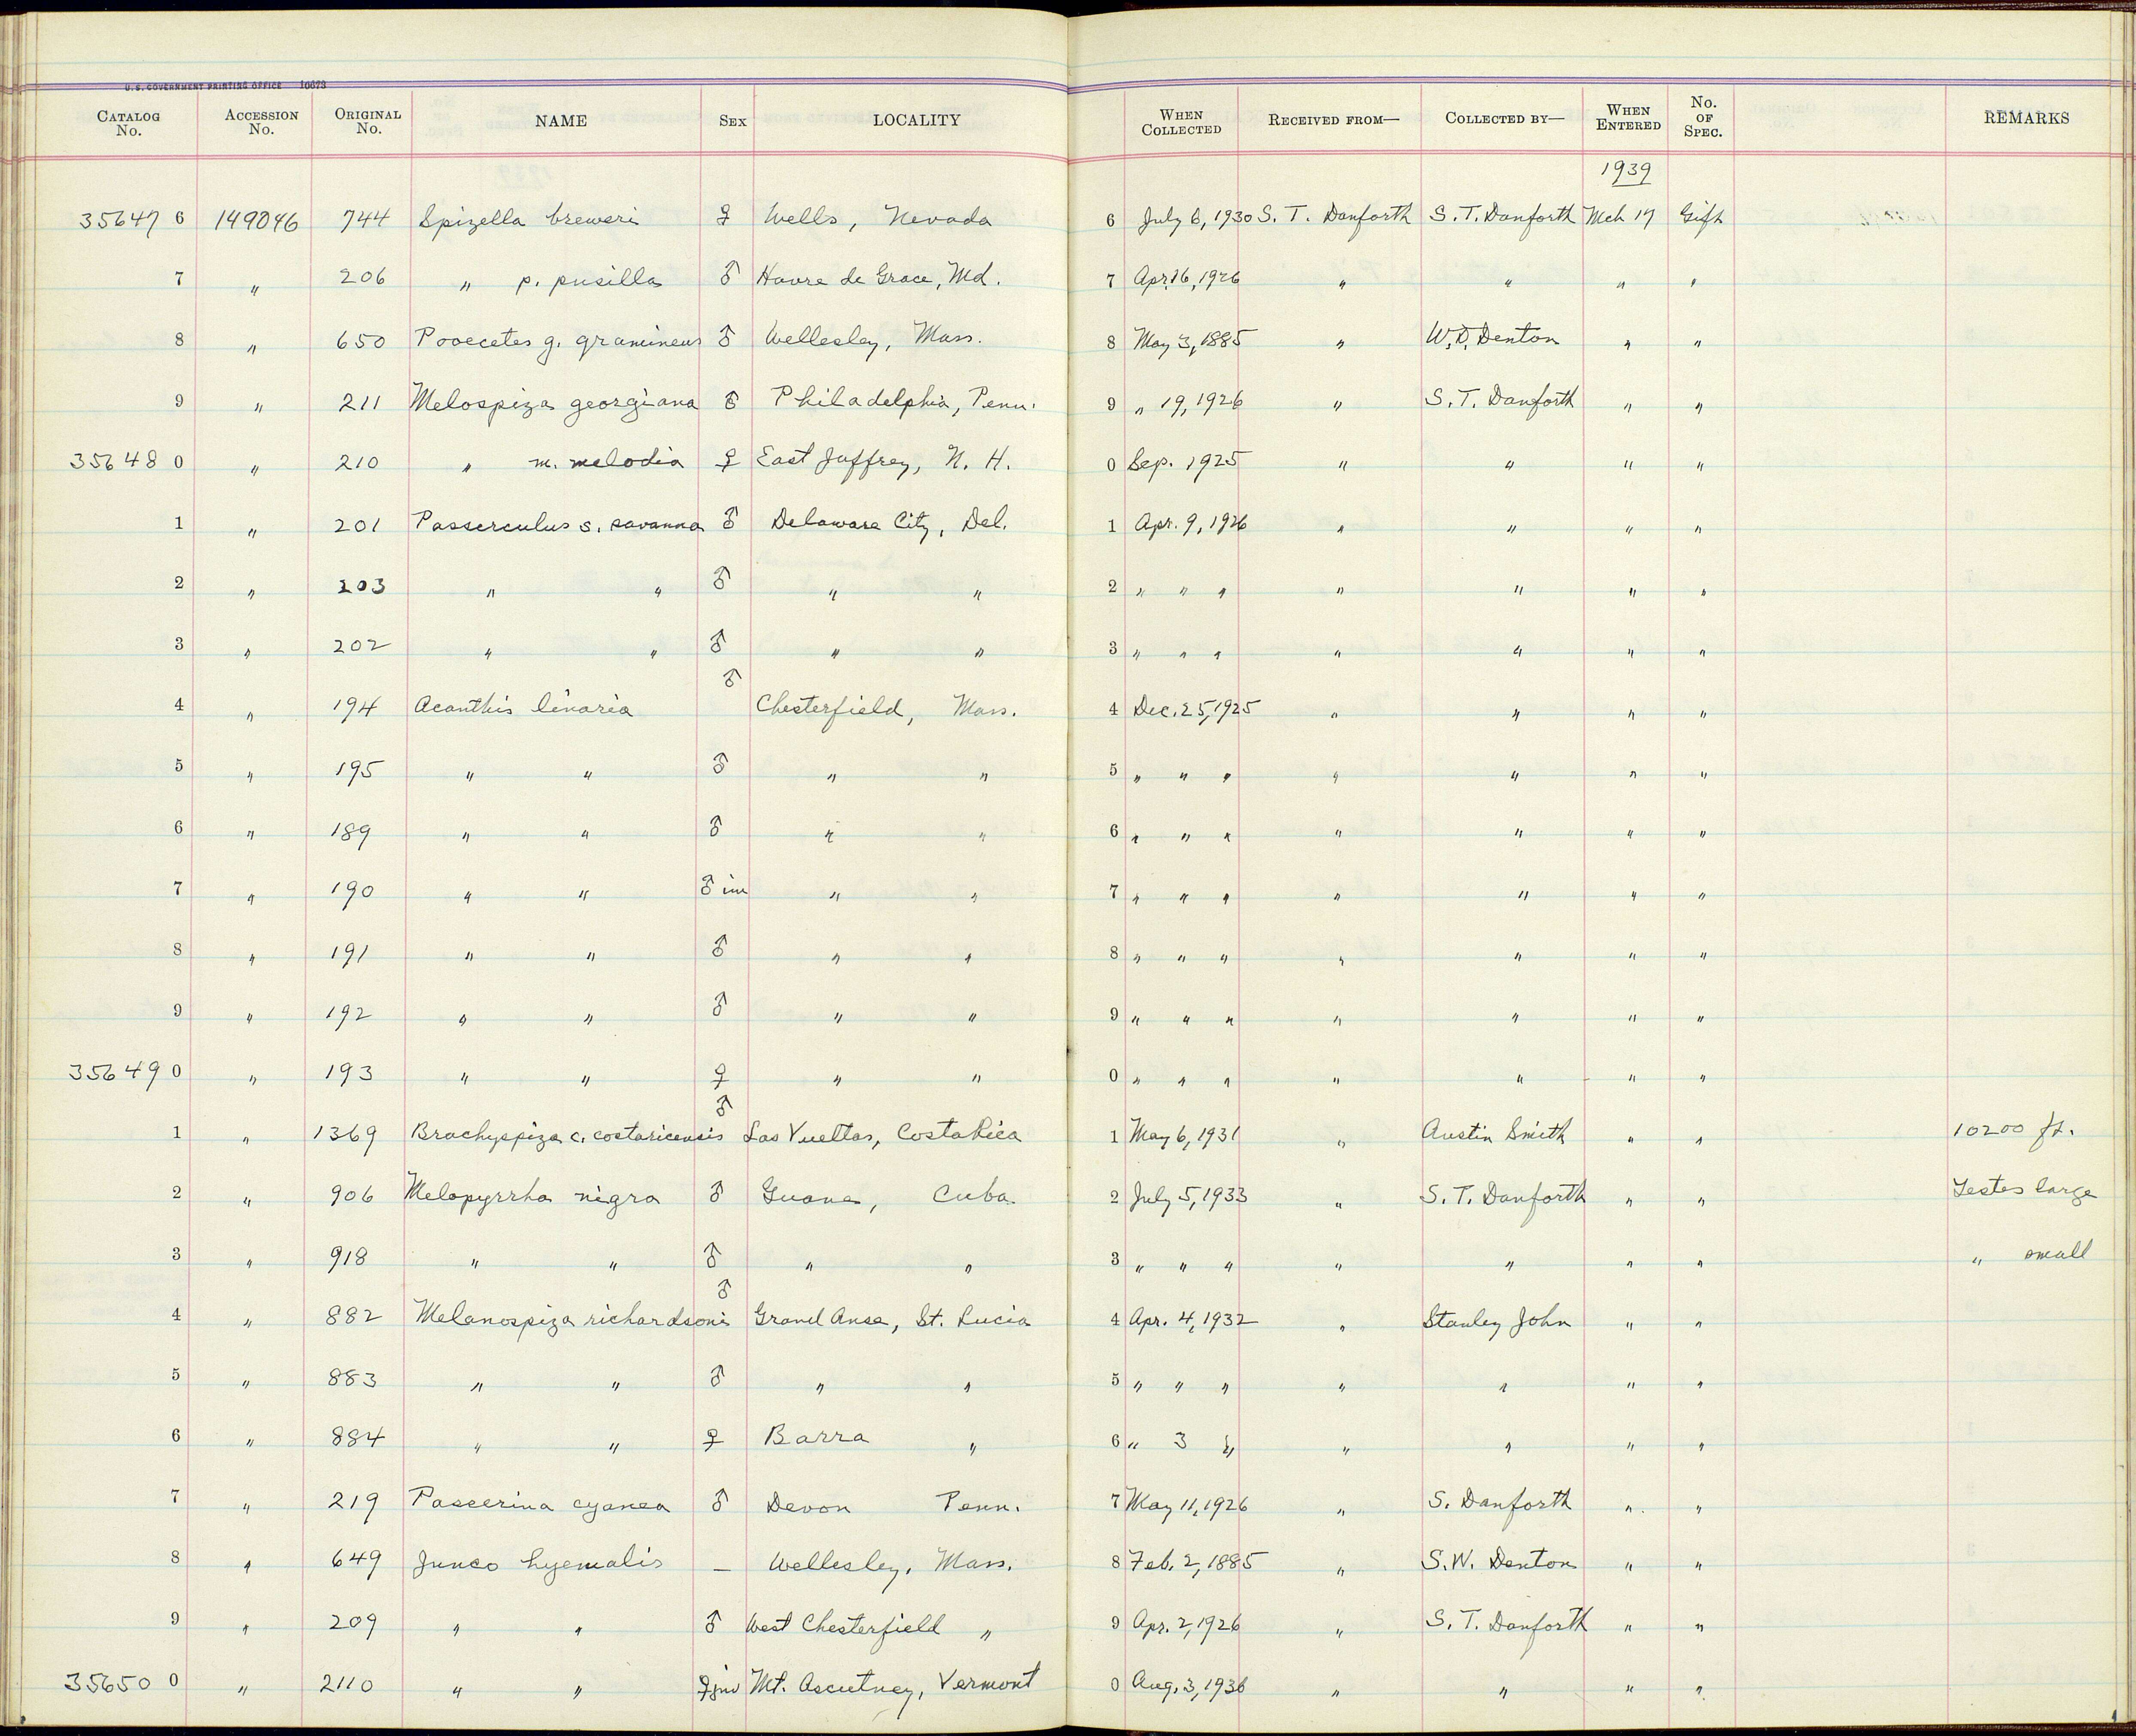 U.S. GOVERNMENT PRINTING OFFICE 10673
CATALOG No. ACCESSION No. ORIGINAL No. NAME SEX LOCALITY WHEN COLLECTED RECEIVED FROM— COLLECTED BY— WHEN ENTERED No. OF SPEC. REMARKS
1939
35647 6 149046 744 Spizella breweri ♀ Wells, Nevada 6 July 6, 1930 S. T. Danforth S. T. Danforth Mch 17 Gift
7 " 206 " p. pusilla ♂ Havre de Grace, Md. 7 Apr. 16, 1926 " " " "
8 " 650 Pooecetes g. gramineus ♂ Wellesley, Mass. 8 May 3, 1885 " W. D. Denton " "
9 " 211 Melospiza georgiana ♂ Philadelphia, Penn. 9 " 19, 1926 " S. T. Danforth " "
35648 0 " 210 " m. melodia ♀ East Jaffrey, N. H. 0 Sep. 1925 " " " "
1 " 201 Passerculus s. savanna ♂ Delaware City, Del. 1 Apr. 9, 1926 " " " "
2 " 203 " " ♂ " " 2 " " " " " " "
3 " 202 " " ♂ " " 3 " " " " " " "
4 " 194 Acanthis linaria ♂ Chesterfield, Mass. 4 Dec. 25, 1925 " " " "
5 " 195 " " ♂ " " 5 " " " " " " "
6 " 189 " " ♂ " " 6 " " " " " " "
7 " 190 " " ♂ im " " 7 " " " " " " "
8 " 191 " " ♂ " " 8 " " " " " " "
9 " 192 " " ♂ " " 9 " " " " " " "
35649 0 " 193 " " ♀ " " 0 " " " " " " "
1 " 1369 Brachyspiza c. costaricensis ♂ Las Vueltas, Costa Rica 1 May 6, 1931 " Austin Smith " " 10200 ft.
2 " 906 Melopyrrha nigra ♂ Guane, Cuba 2 July 5, 1933 " S. T. Danforth " " Testes large
3 " 918 " " ♂ " " 3 " " " " " " " " small
4 " 882 Melanospiza richardsoni ♂ Grand Anse, St. Lucia 4 Apr. 4, 1932 " Stanley John " "
5 " 883 " " ♂ " " 5 " " " " " " "
6 " 884 " " ♀ Barra " 6 " 3 " " " " "
7 " 219 Passerina cyanea ♂ Devon Penn. 7 May 11, 1926 " S. Danforth " "
8 " 649 Junco hyemalis — Wellesley, Mass. 8 Feb. 2, 1885 " S. W. Denton " "
9 " 209 " " ♂ West Chesterfield " 9 Apr. 2, 1926 " S. T. Danforth " "
35650 0 " 2110 " " ♀ juv Mt. Ascutney, Vermont 0 Aug. 3, 1936 " " " "